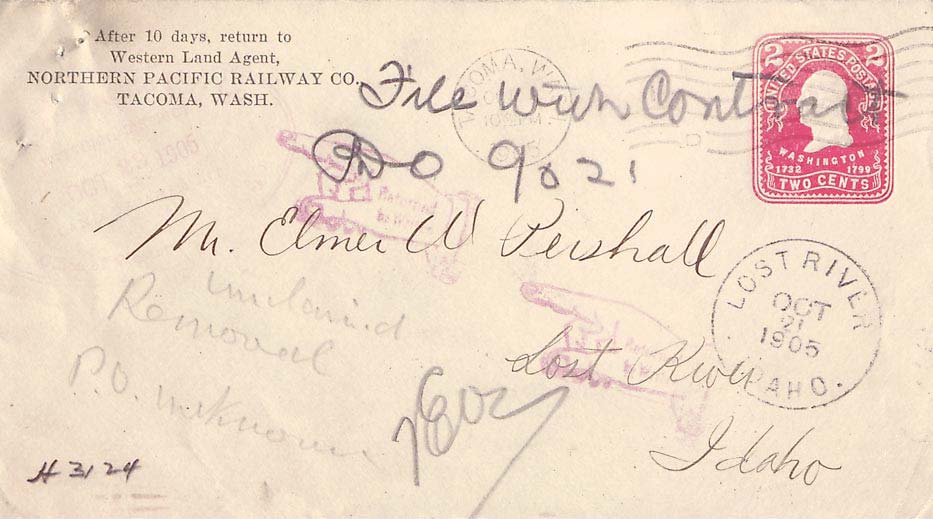 After 10 days, return to
Western Land Agent,
NORTHERN PACIFIC RAILWAY CO.,
TACOMA, WASH.
TACOMA, W
2 UNITED STATES POSTAGE 2
WASHINGTON
1732 1799
TWO CENTS
File with Contract
9021
1905
Returned
to Writer
Mr. Elmer W Pershall
Lost River
Idaho
LOST RIVER
OCT
21
1905
IDAHO.
Unclaimed
Removal
P.O. unknown
H 3124